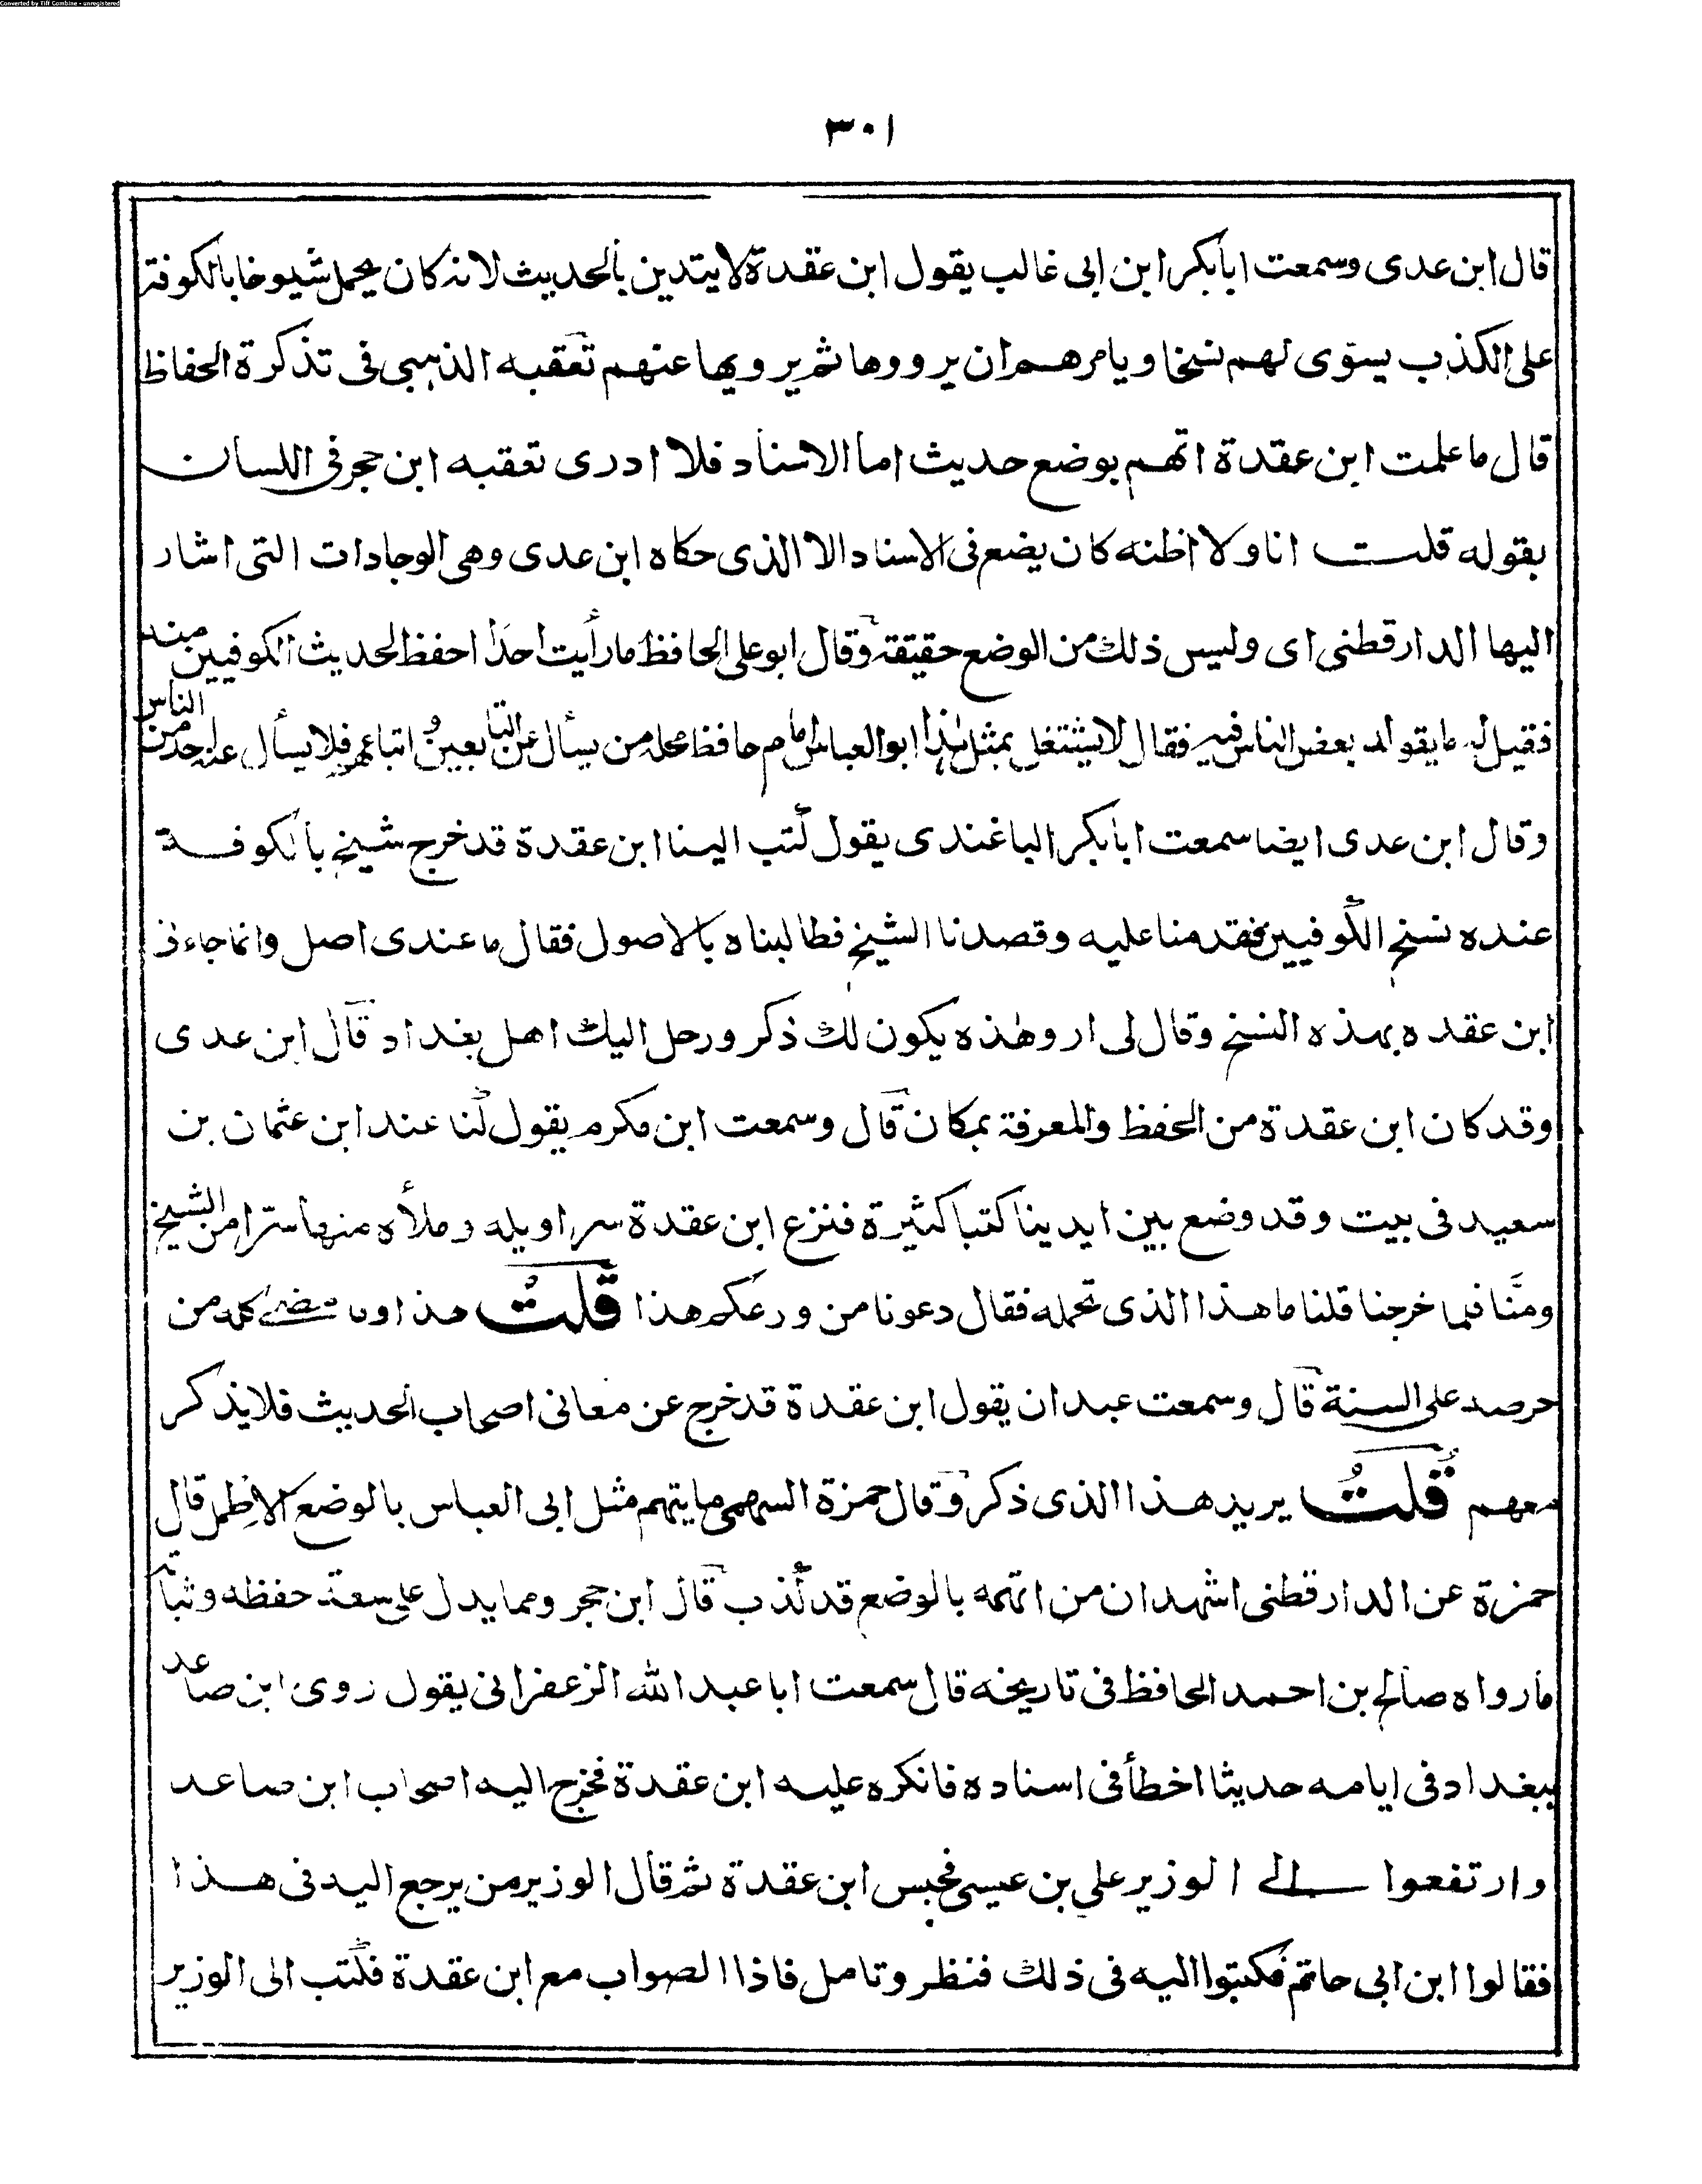 Converted by Tiff Combine - unregistered
٣٠١
قال ابن عدى وسمعت ابابكر ابن ابى غالب يقول ابن عقدة لا يتدين بالحديث لانه كان يحمل شيوخا بالكوفة
على الكذب يسوّى لهم نسخا ويامرهم ان يرووها ثم يرويها عنهم تعقبه الذهبى فى تذكرة الحفاظ
قال ما علمت ابن عقدة اتهم بوضع حديث اما الاسناد فلا ادرى تعقبه ابن حجر فى اللسان
بقوله قلت انا ولا اظنه كان يضع فى الاسناد الا الذى حكاه ابن عدى وهى الوجادات التى اشار
اليها الدارقطنى اى وليس ذلك من الوضع حقيقة وقال ابو على الحافظ ما رأيت احدا احفظ لحديث الكوفيين منه
فقيل له ما يقوله بعض الناس فيه فقال لا يشتغل بمثل هذا ابو العباس امام حافظ محله من يسأل عن التابعين و اتباعهم فلا يسأل عنه احد من الناس
وقال ابن عدى ايضا سمعت ابابكر الباغندى يقول كتب الينا ابن عقدة قد خرج شيخ بالكوفة
عنده نسخ الكوفيين فقدمنا عليه وقصدنا الشيخ فطالبناه بالاصول فقال ما عندى اصل وانما جاءنى
ابن عقده بهذه النسخ وقال لى ارو هذه يكون لك ذكر ورحل اليك اهل بغداد قال ابن عدى
وقد كان ابن عقدة من الحفظ والمعرفة بمكان قال وسمعت ابن مكرم يقول كنا عند ابن عثمان بن
سعيد فى بيت وقد وضع بين ايدينا كتبا كثيرة فنزع ابن عقدة سراويله وملأه منها سترا من الشيخ
ومنّا فلما خرجنا قلنا ما هذا الذى تحمله فقال دعونا من ورعكم هذا قلت هذا كله من
حرصه على السنة قال وسمعت عبدان يقول ابن عقدة قد خرج عن معانى اصحاب الحديث فلا يذكر
معهم قلت يريد هذا الذى ذكر وقال حمزة السهمى ما يتهم مثل ابى العباس بالوضع الا طبل قال
حمزة عن الدارقطنى اشهد ان من اتهمه بالوضع قد كذب قال ابن حجر ومما يدل على سعة حفظه وثباته
ما رواه صالح بن احمد الحافظ فى تاريخه قال سمعت ابا عبد الله الزعفرانى يقول روى ابن صاعد
ببغداد فى ايامه حديثا اخطأ فى اسناده فانكره عليه ابن عقدة فخرج اليه اصحاب ابن صاعد
وارتفعوا الى الوزير على بن عيسى فحبس ابن عقدة ثم قال الوزير من يرجع اليه فى هذا
فقالوا ابن ابى حاتم فكتبوا اليه فى ذلك فنظر وتامل فاذا الصواب مع ابن عقدة فكتب الى الوزير